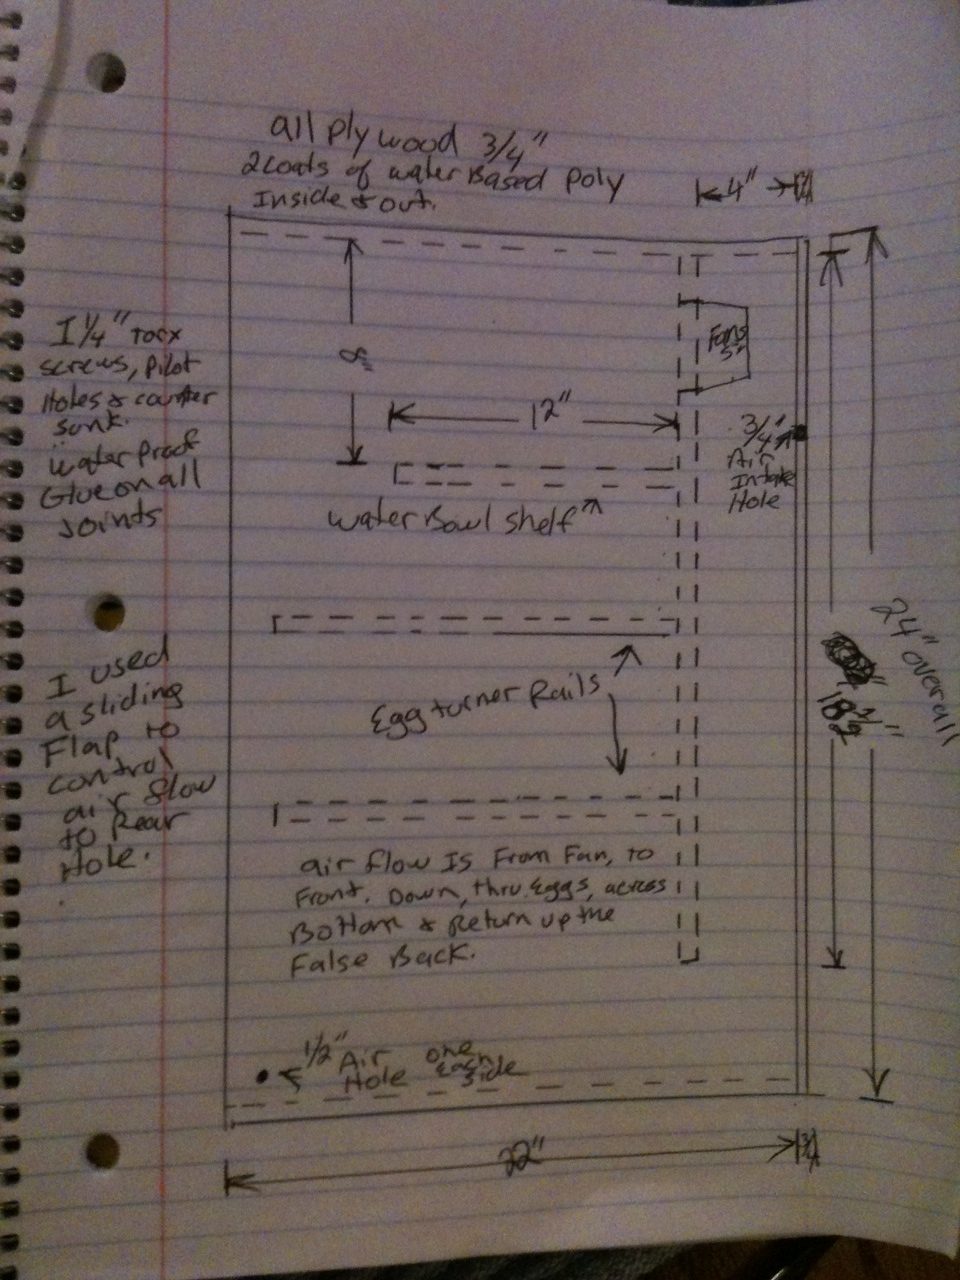 all plywood 3/4"
2 coats of water Based Poly
Inside & out.
4"
3/4
1 1/4" Torx
screws, pilot
Holes & counter
sunk.
Water Proof
Glue on all
Joints
8"
12"
Fans
5"
3/4"
Air
Intake
Hole
Water Bowl Shelf
24" overall
18 1/2"
Egg turner Rails
I used
a sliding
Flap to
control
air flow
to Rear
Hole.
air flow Is From Fan, to
Front, Down, thru Eggs, across
Bottom & Return up the
False Back.
1/2" Air
Hole one
Each
side
22"
3/4